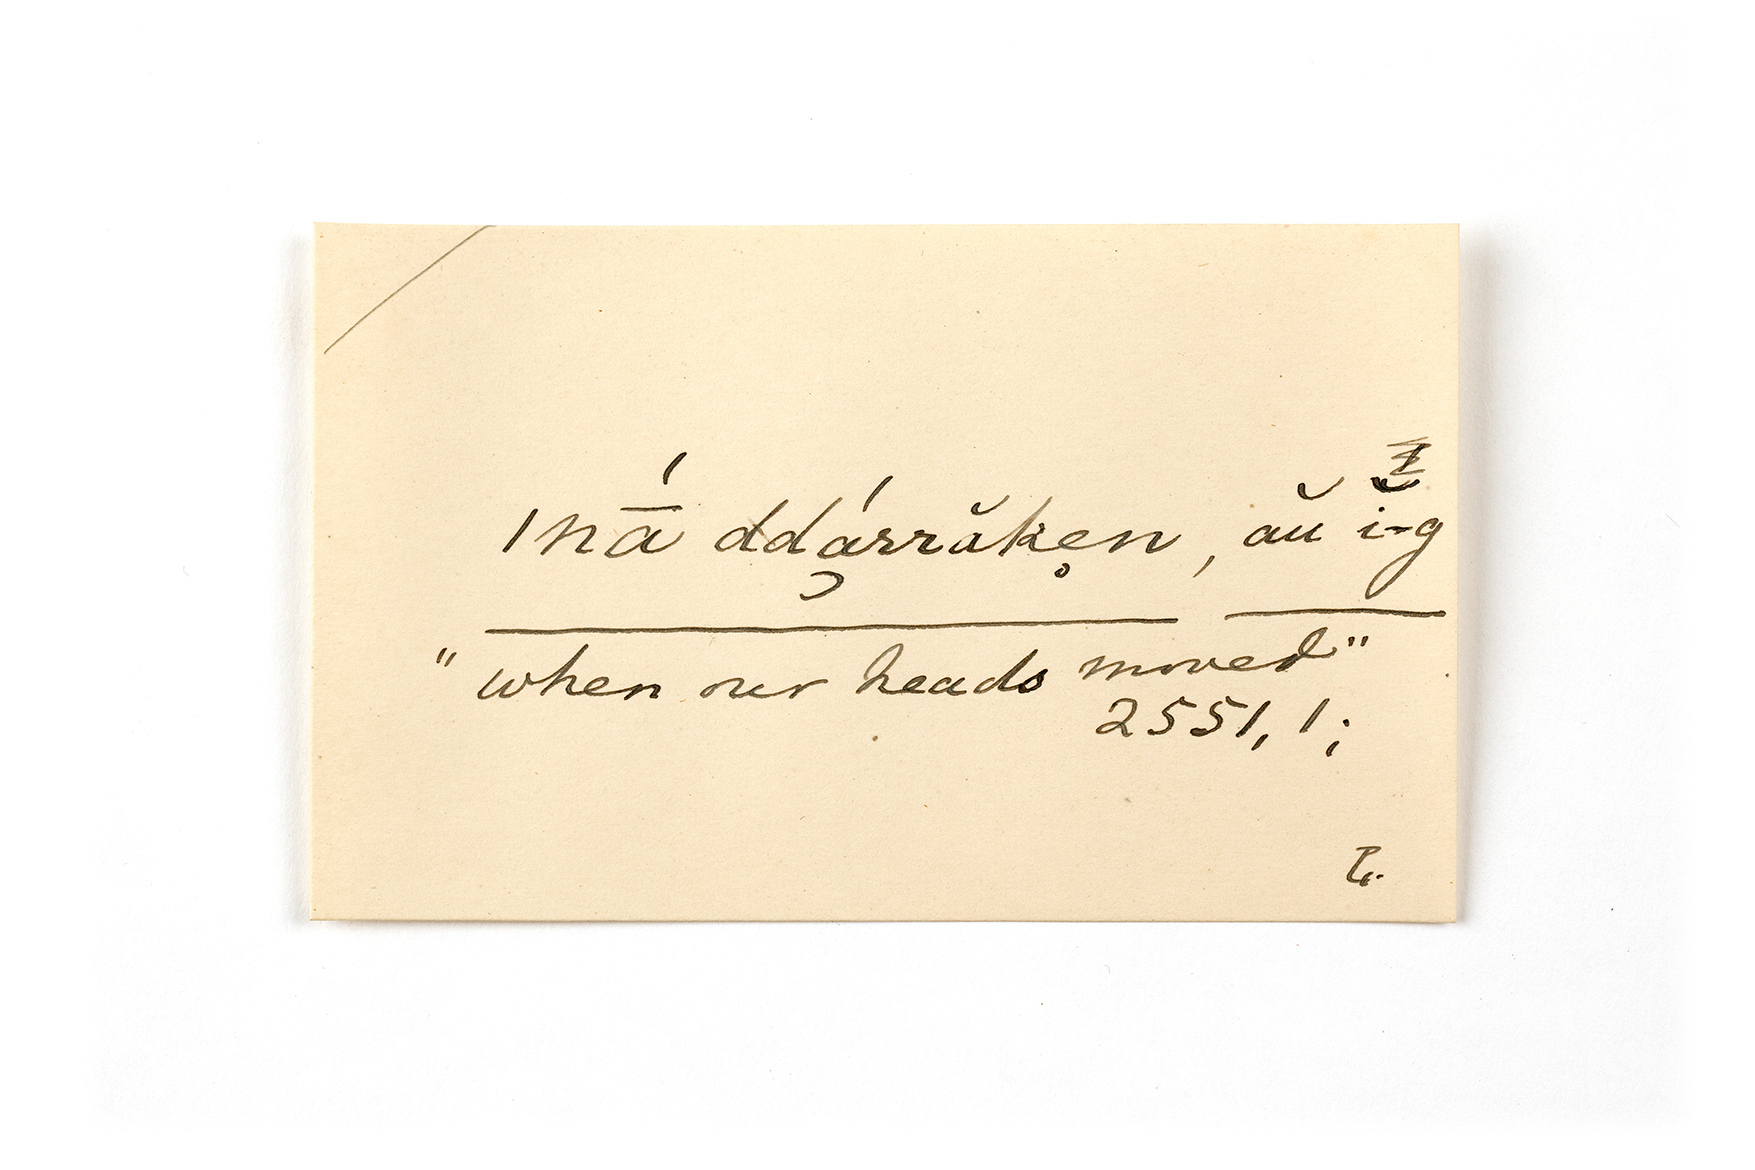 ınā́ ddá̜rrăke̥n, aŭ ĭ-g
"when our heads moved"
2551, 1;